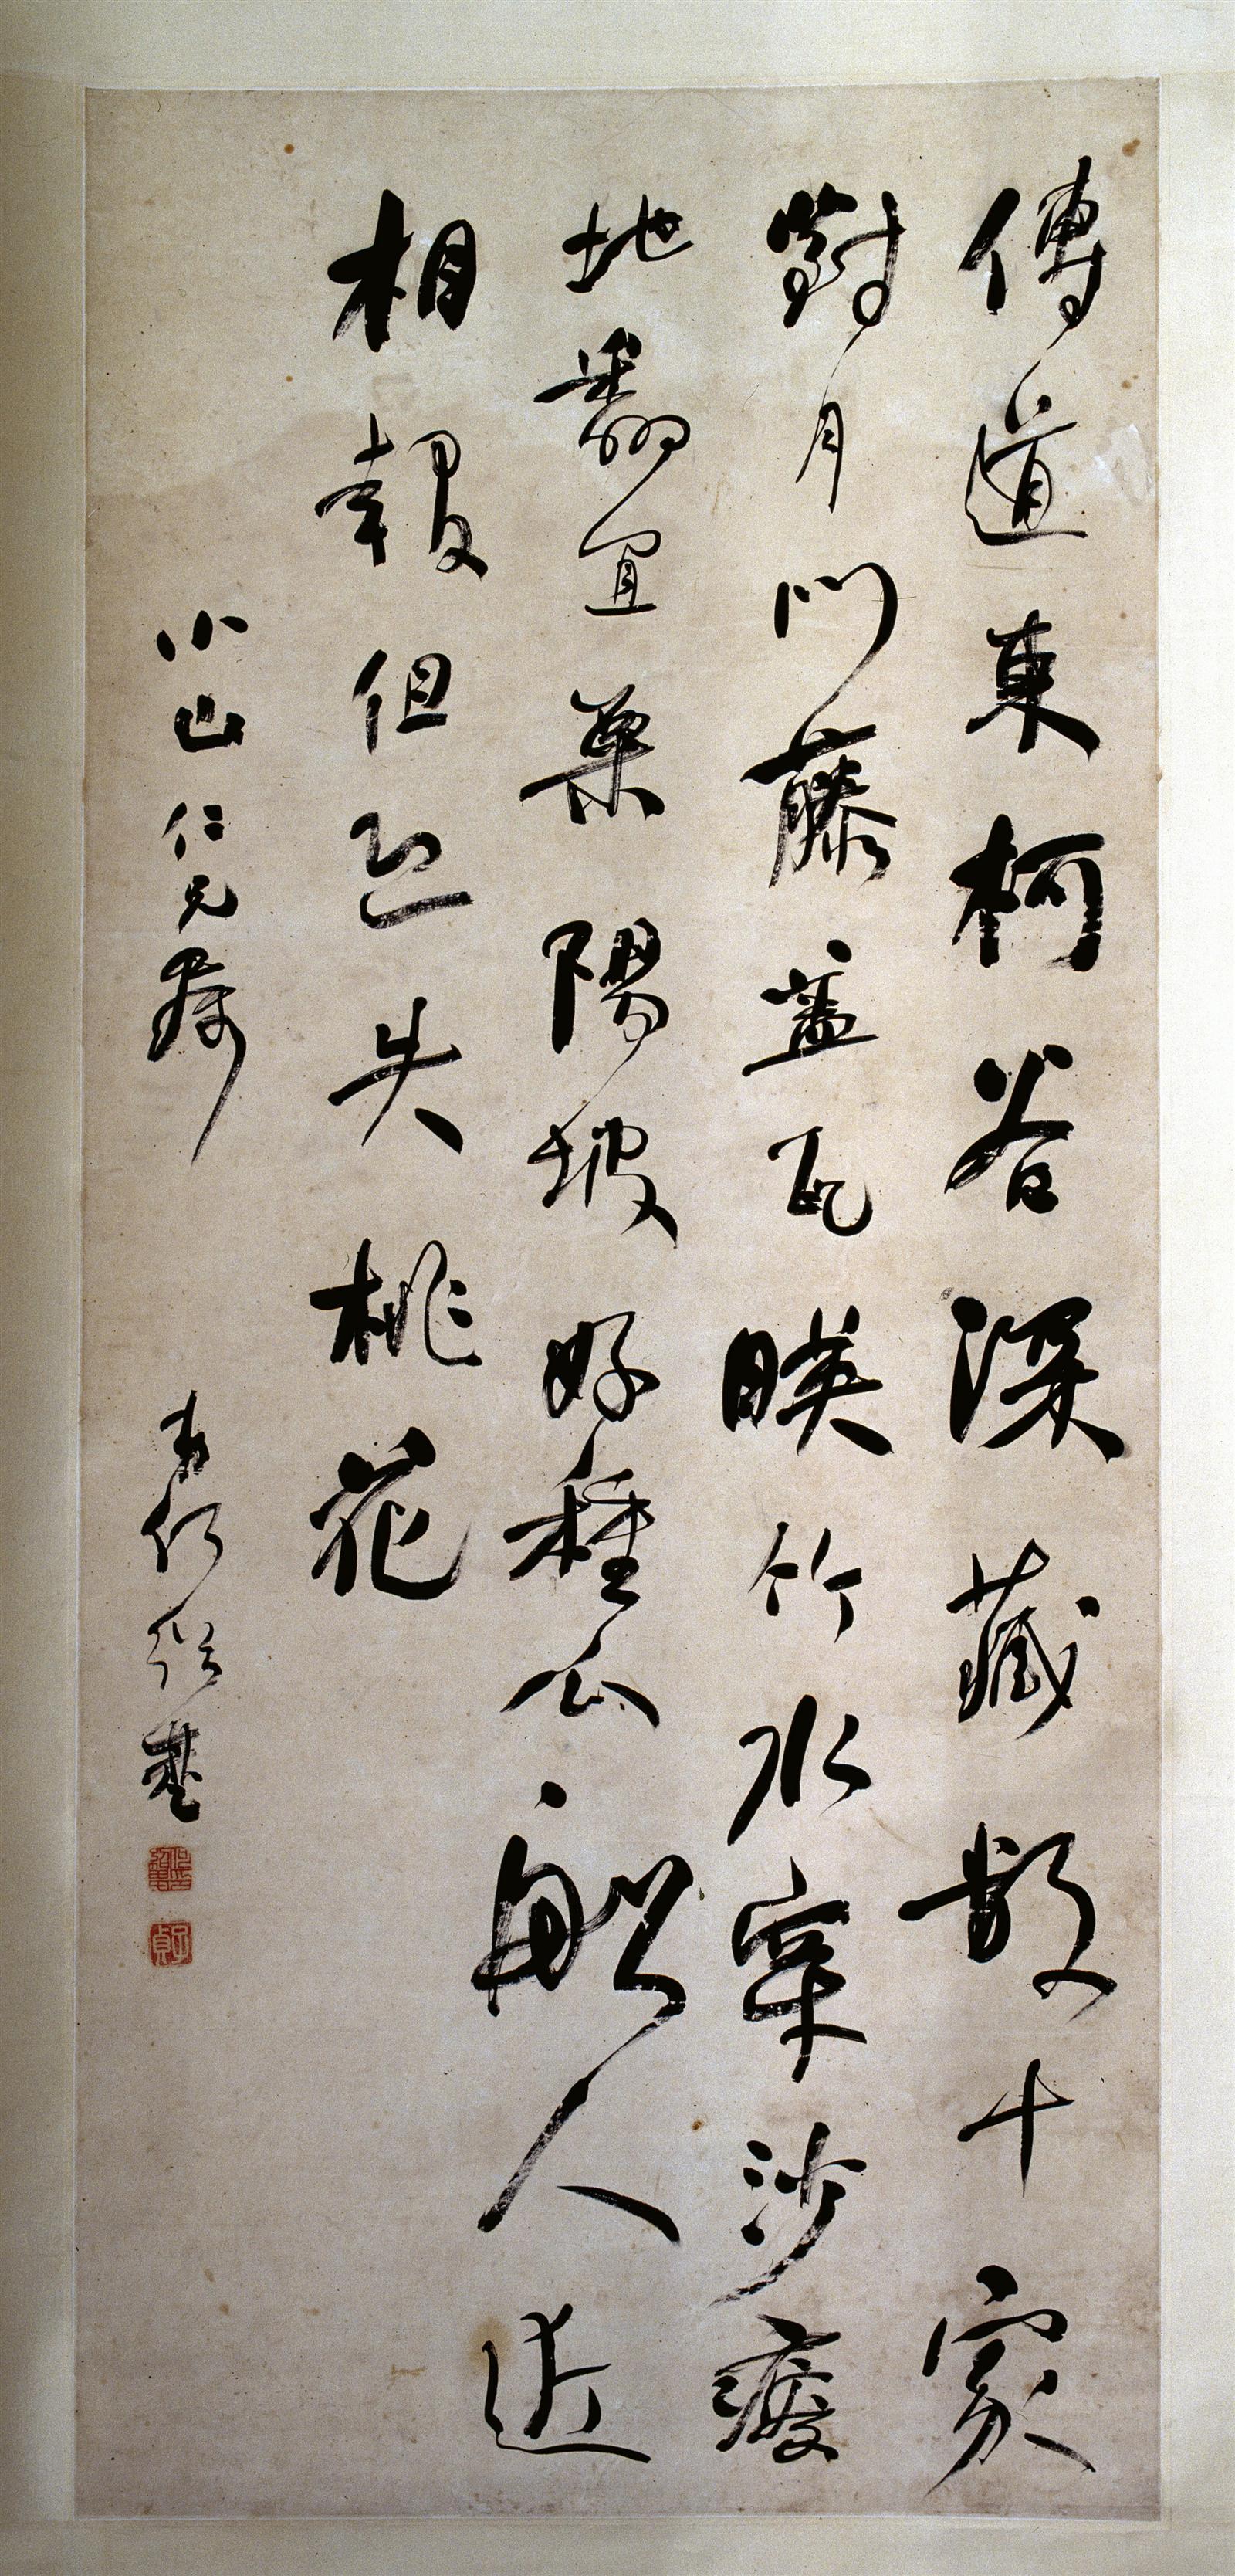 傳道東柯谷深藏數十家
對月門藤蓋瓦暎竹水穿沙瘦
地翻宜粟陽坡好種瓜船人近
相報但恐失桃花
小山仁兄屬
何紹基
何紹基印
子貞